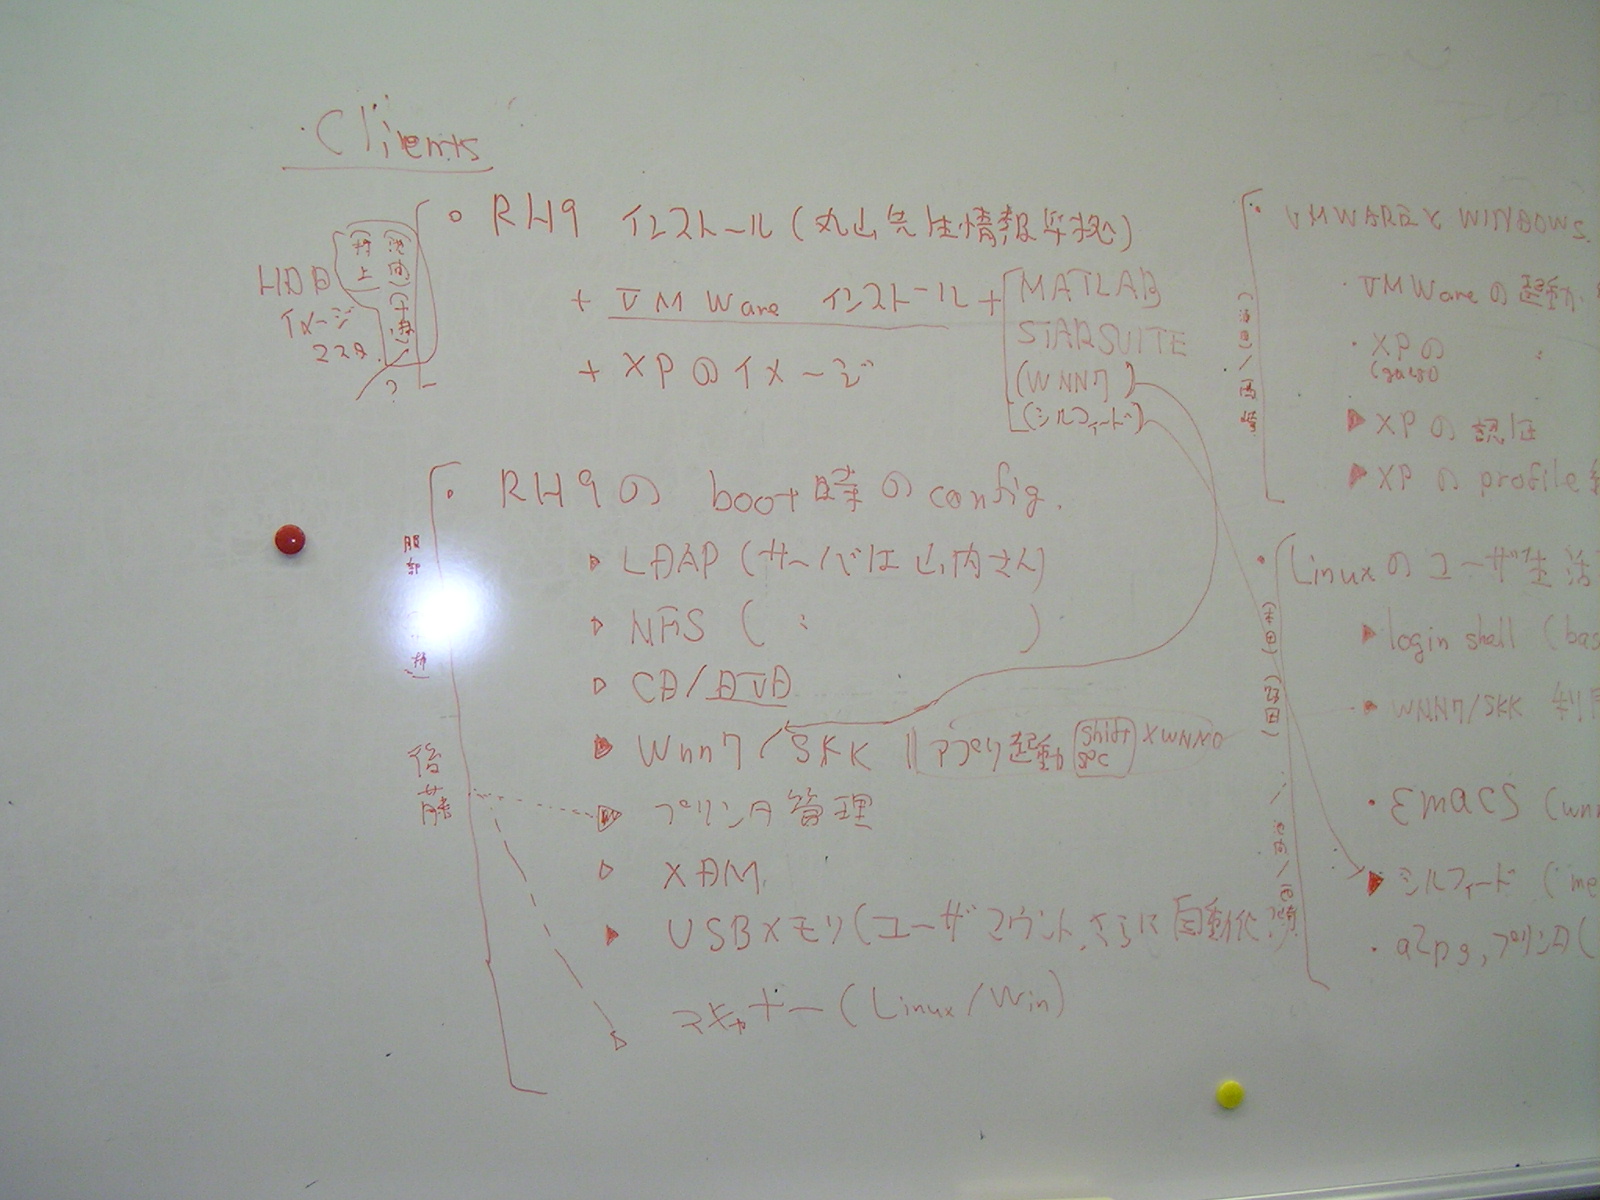 Clients
RH9 インストール (丸山先生情報準拠)
+ VMWare インストール +
MATLAB
STARSUITE
(WNN7)
(シルフィード)
+ XPのイメージ
HDD
イメージ
?
RH9の boot時のconfig.
LDAP (サーバは山内さん)
NFS ( : )
CD/DVD
Wnn7/SKK || アプリ起動 shift spc XWNMO
プリンタ管理
XDM
USBメモリ(ユーザマウント,さらに自動化)
スキャナー(Linux/Win)
服部
後藤
VMWAREとWINDOWS
・VMWareの起動
・XPの
XPの認証
XPのprofile
Linuxのユーザ生活
login shell (bas
WNN7/SKK 利用
・Emacs (wnn
シルフィード (me
・a2ps,プリンタ(